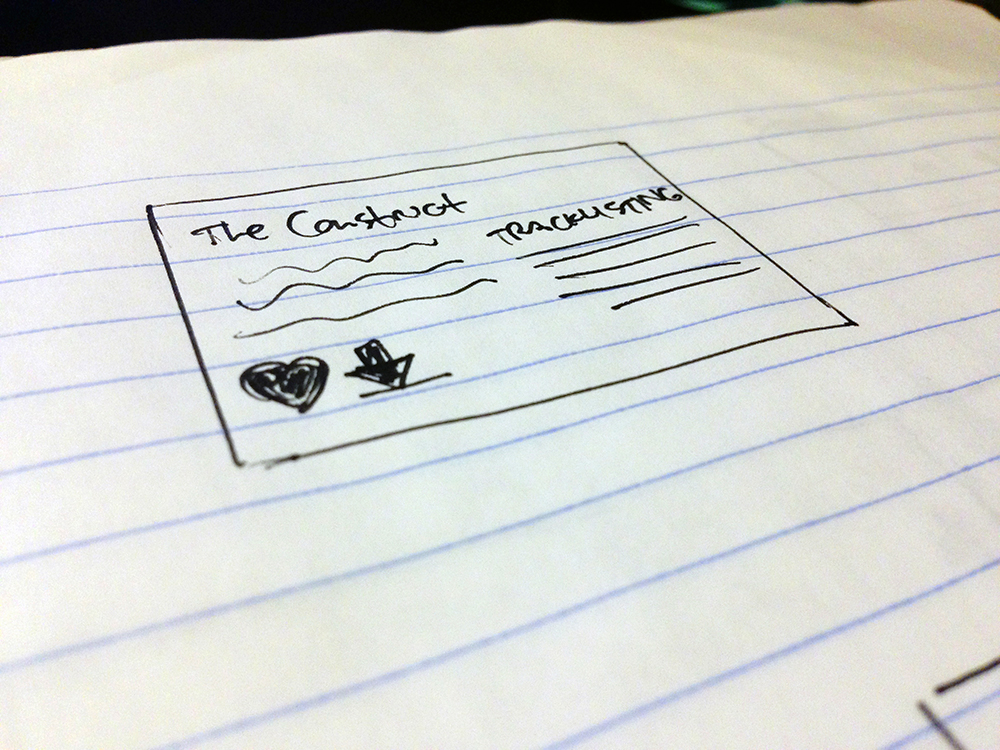 The Construct
TRACKLISTING